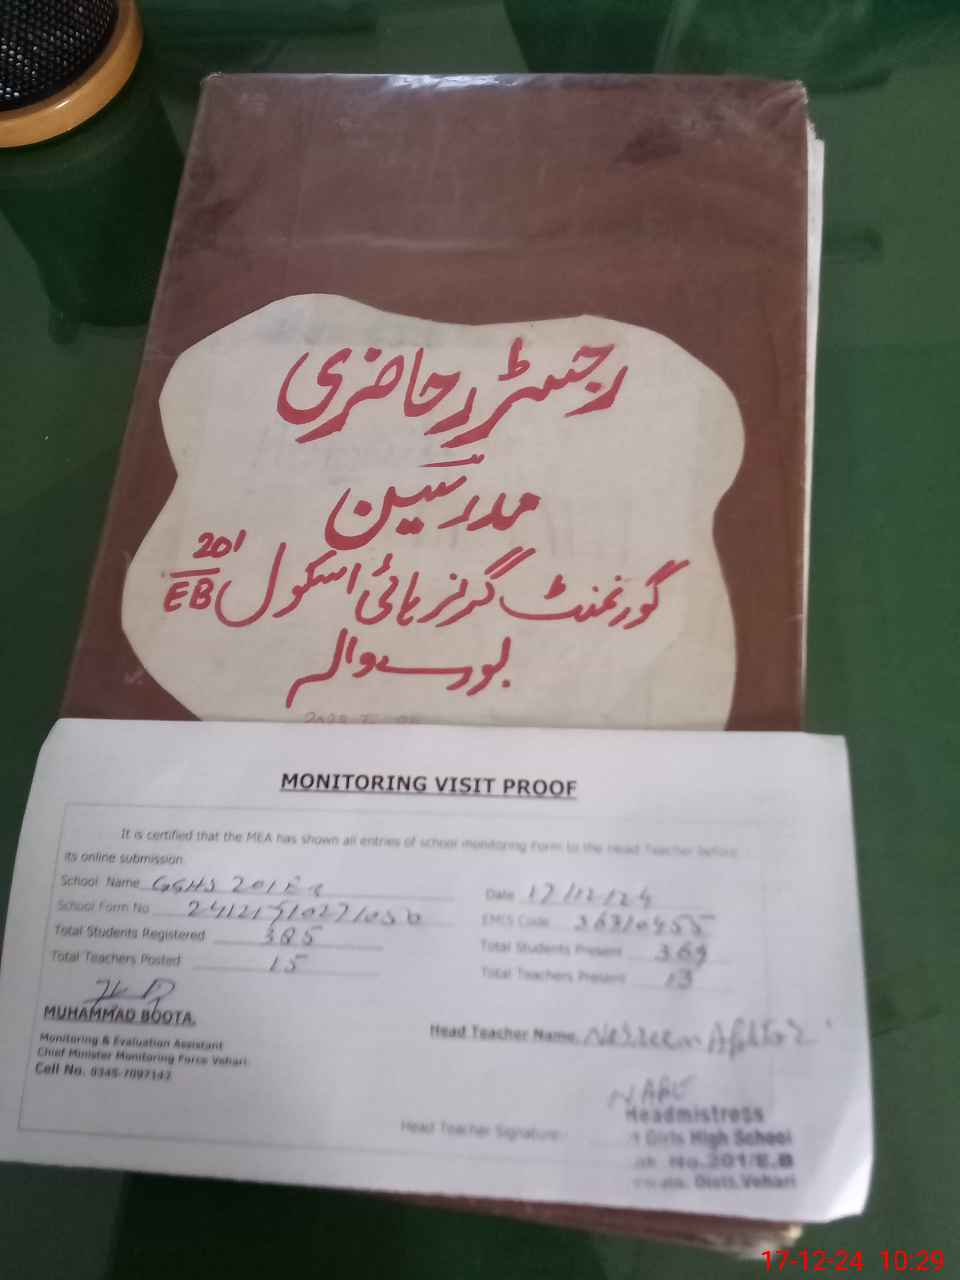 رجسٹر حاضری
مدرسین
گورنمنٹ گرلز ہائی اسکول 201/EB
بورے والہ
MONITORING VISIT PROOF
It is certified that the MEA has shown all entries of school monitoring Form to the Head Teacher before
its online submission
School Name GGHS 201 E
Date 17/12/24
School Form No
EMIS Code 36310455
Total Students Registered 385
Total Students Present 369
Total Teachers Posted 15
Total Teachers Present 13
MUHAMMAD BOOTA
Monitoring & Evaluation Assistant
Chief Minister Monitoring Force Vehari
Cell No. 0345-7097147
Head Teacher Name
Head Teacher Signature
Headmistress
Girls High School
No.201/E.B
Distt. Vehari
17-12-24 10:29